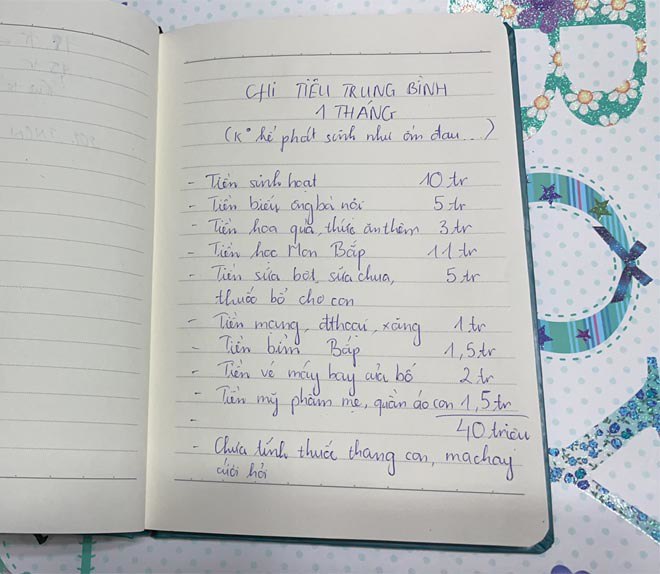 CHI TIÊU TRUNG BÌNH
1 THÁNG
(K° kể phát sinh như ốm đau...)
- Tiền sinh hoạt 10 tr
- Tiền biếu ông bà nội 5 tr
- Tiền hoa quả, thức ăn thêm 3 tr
- Tiền học Mon Bắp 11 tr
- Tiền sữa bột, sữa chua, 5 tr
thuốc bổ cho con
- Tiền mạng, đthoại, xăng 1 tr
- Tiền bỉm Bắp 1,5 tr
- Tiền vé máy bay của bố 2 tr
- Tiền mỹ phẩm mẹ, quần áo con 1,5 tr
- 40 triệu
- Chưa tính thuốc thang con, ma chay
cưới hỏi